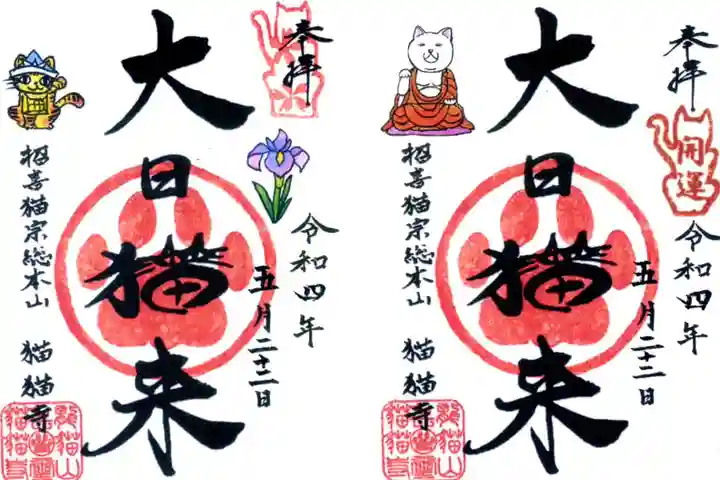 奉拝
大日猫来
令和四年
五月二十二日
招喜猫宗総本山 猫猫寺
奉拝
開運
大日猫来
令和四年
五月二十二日
招喜猫宗総本山 猫猫寺